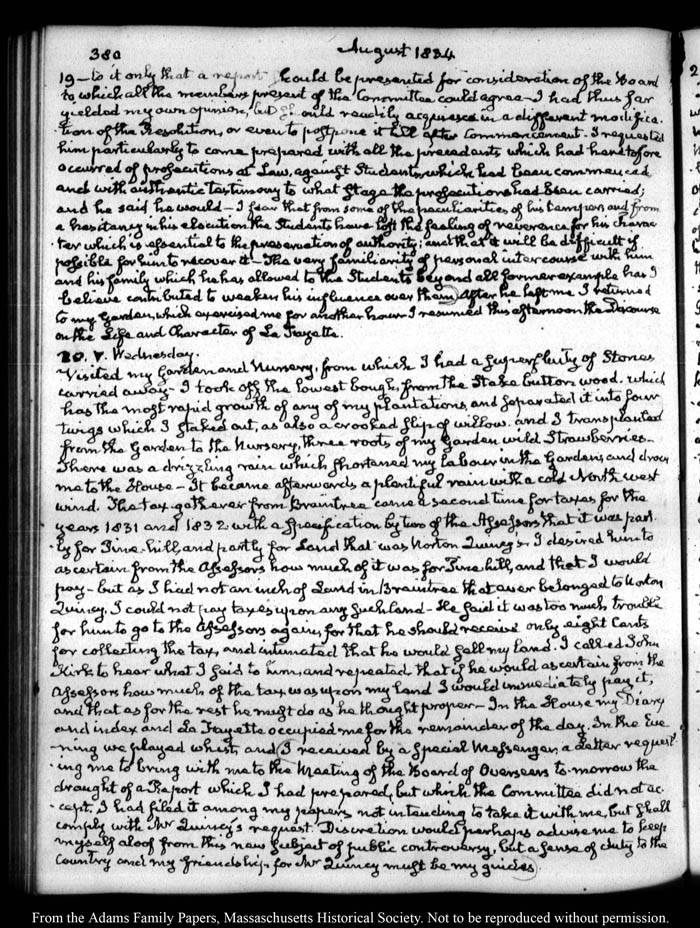 380 August 1834
19 — to it only that a report should be presented for consideration of the Board
to which all the members present of the Committee could agree — I had thus far
yielded my own opinion, but should readily acquiesce in a different modifica-
tion of the Resolution, or even to postpone it till after Commencement. I requested
him particularly to come prepared with all the precedents which had heretofore
occurred of prosecutions at Law, against Students, which had been commenced
and with authentic testimony to what stage the prosecutions had been carried;
and he said he would — I fear that from some of the peculiarities of his temper, and from
a hesitancy in his elocution the Students have lost the feeling of reverence for his charac-
ter which is essential to the preservation of authority; and that it will be difficult if
possible for him to recover it — The very familiarity of personal intercourse with him
and his family which he has allowed to the Students beyond all former example has I
believe contributed to weaken his influence over them. After he left me I returned
to my Garden, which exercised me for another hour. I resumed this afternoon the Discourse
on the Life and Character of La Fayette.
20. V. Wednesday.
Visited my Garden and Nursery, from which I had a superfluity of Stones
carried away — I took off the lowest bough, from the Stake button wood, which
has the most rapid growth of any of my plantations, and separated it into four
twigs which I staked out, as also a crooked slip of willow. and I transplanted
from the Garden to the Nursery, three roots of my Garden wild Strawberries —
There was a drizzling rain which shortened my labour in the Gardens, and drove
me to the House — It became afterwards a plentiful rain with a cold North west
wind. The tax gatherer from Braintree came a second time for taxes for the
years 1831 and 1832 with a specification by two of the Assessors that it was part-
ly for Pine-hill, and partly for Land that was Norton Quincy's. I desired him to
ascertain from the Assessors how much of it was for Pine hill, and that I would
pay — but as I had not an inch of Land in Braintree that ever belonged to Norton
Quincy, I could not pay taxes upon any such land — He said it was too much trouble
for him to go to the Assessors again, for that he should receive only eight Cents
for collecting the tax, and intimated that he would sell my land. I called John
Kirk to hear what I said to him, and repeated that if he would ascertain from the
Assessors how much of the tax was upon my land I would immediately pay it,
and that as for the rest he must do as he thought proper — In the House my Diary
and index and La Fayette occupied me for the remainder of the day. In the Eve-
ning we played whist, and I received by a special Messenger, a Letter request-
ing me to bring with me to the Meeting of the Board of Overseers to-morrow the
draught of a Report which I had prepared, but which the Committee did not ac-
cept. I had filed it among my papers not intending to take it with me, but shall
comply with Mr Quincy's request. Discretion would perhaps advise me to keep
myself aloof from this new subject of public controversy, but a sense of duty to the
Country and my friendship for Mr Quincy must be my guides.
From the Adams Family Papers, Massachusetts Historical Society. Not to be reproduced without permission.